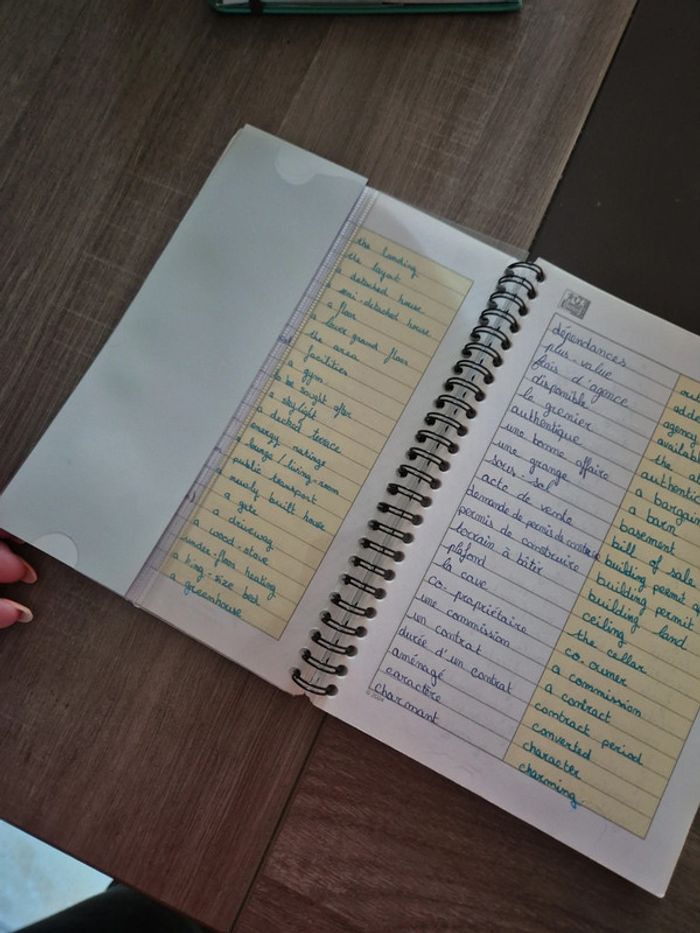 the landing
the layout
a detached house
a semi-detached house
a floor
a lower ground floor
the area
facilities
a gym
to be sought after
a skylight
a decked terrace
energy ratings
a lounge / living-room
public transport
a newly built house
a gate
a driveway
a wood-stove
under-floor heating
a king-size bed
a greenhouse
dépendances
plus-value
frais d'agence
disponible
le grenier
authentique
une bonne affaire
une grange
sous-sol
acte de vente
demande de permis de
permis de construire
terrain à bâtir
plafond
la cave
co-propriétaire
une commission
un contrat
durée d'un contrat
aménagé
caractère
charmant
out
adde
agency
availabl
the at
authentic
a bargain
a barn
basement
bill of sale
building permit
building permit
building land
ceiling
the cellar
co-owner
a commission
a contract
contract period
converted
character
charming